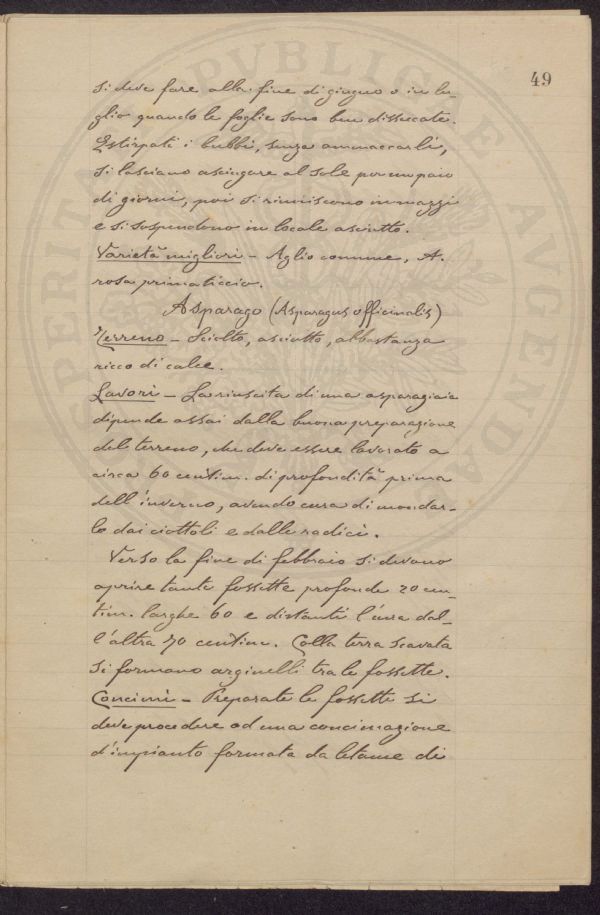 49
si deve fare alla fine di giugno o in lu-
glio quando le foglie sono ben disseccate.
Estirpati i bulbi, senza ammaccarli,
si lasciano asciugare al sole per un paio
di giorni, poi si riuniscono in mazzi
e si sospendono in locale asciutto.
Varietà migliori - Aglio comune, A.
rosa primaticcio.
Asparago (Asparagus officinalis)
Terreno - Sciolto, asciutto, abbastanza
ricco di calce.
Lavori - La riuscita di una asparagiaia
dipende assai dalla buona preparazione
del terreno, che deve essere lavorato a
circa 60 centim. di profondità prima
dell'inverno, avendo cura di mondar-
lo dai ciottoli e dalle radici.
Verso la fine di febbraio si devono
aprire tante fossette profonde 20 cen-
tim. larghe 60 e distanti l'una dal-
l'altra 70 centim. Colla terra scavata
si formano arginelli tra le fossette.
Concimi - Preparate le fossette si
deve procedere ad una concimazione
d'impianto formata da letame di